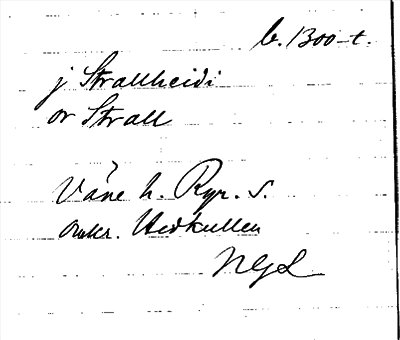 b. 1300-t.
j Strallheidi
or Strall
Väne h. Ryr. s.
omkr. Hedkullen
NGL